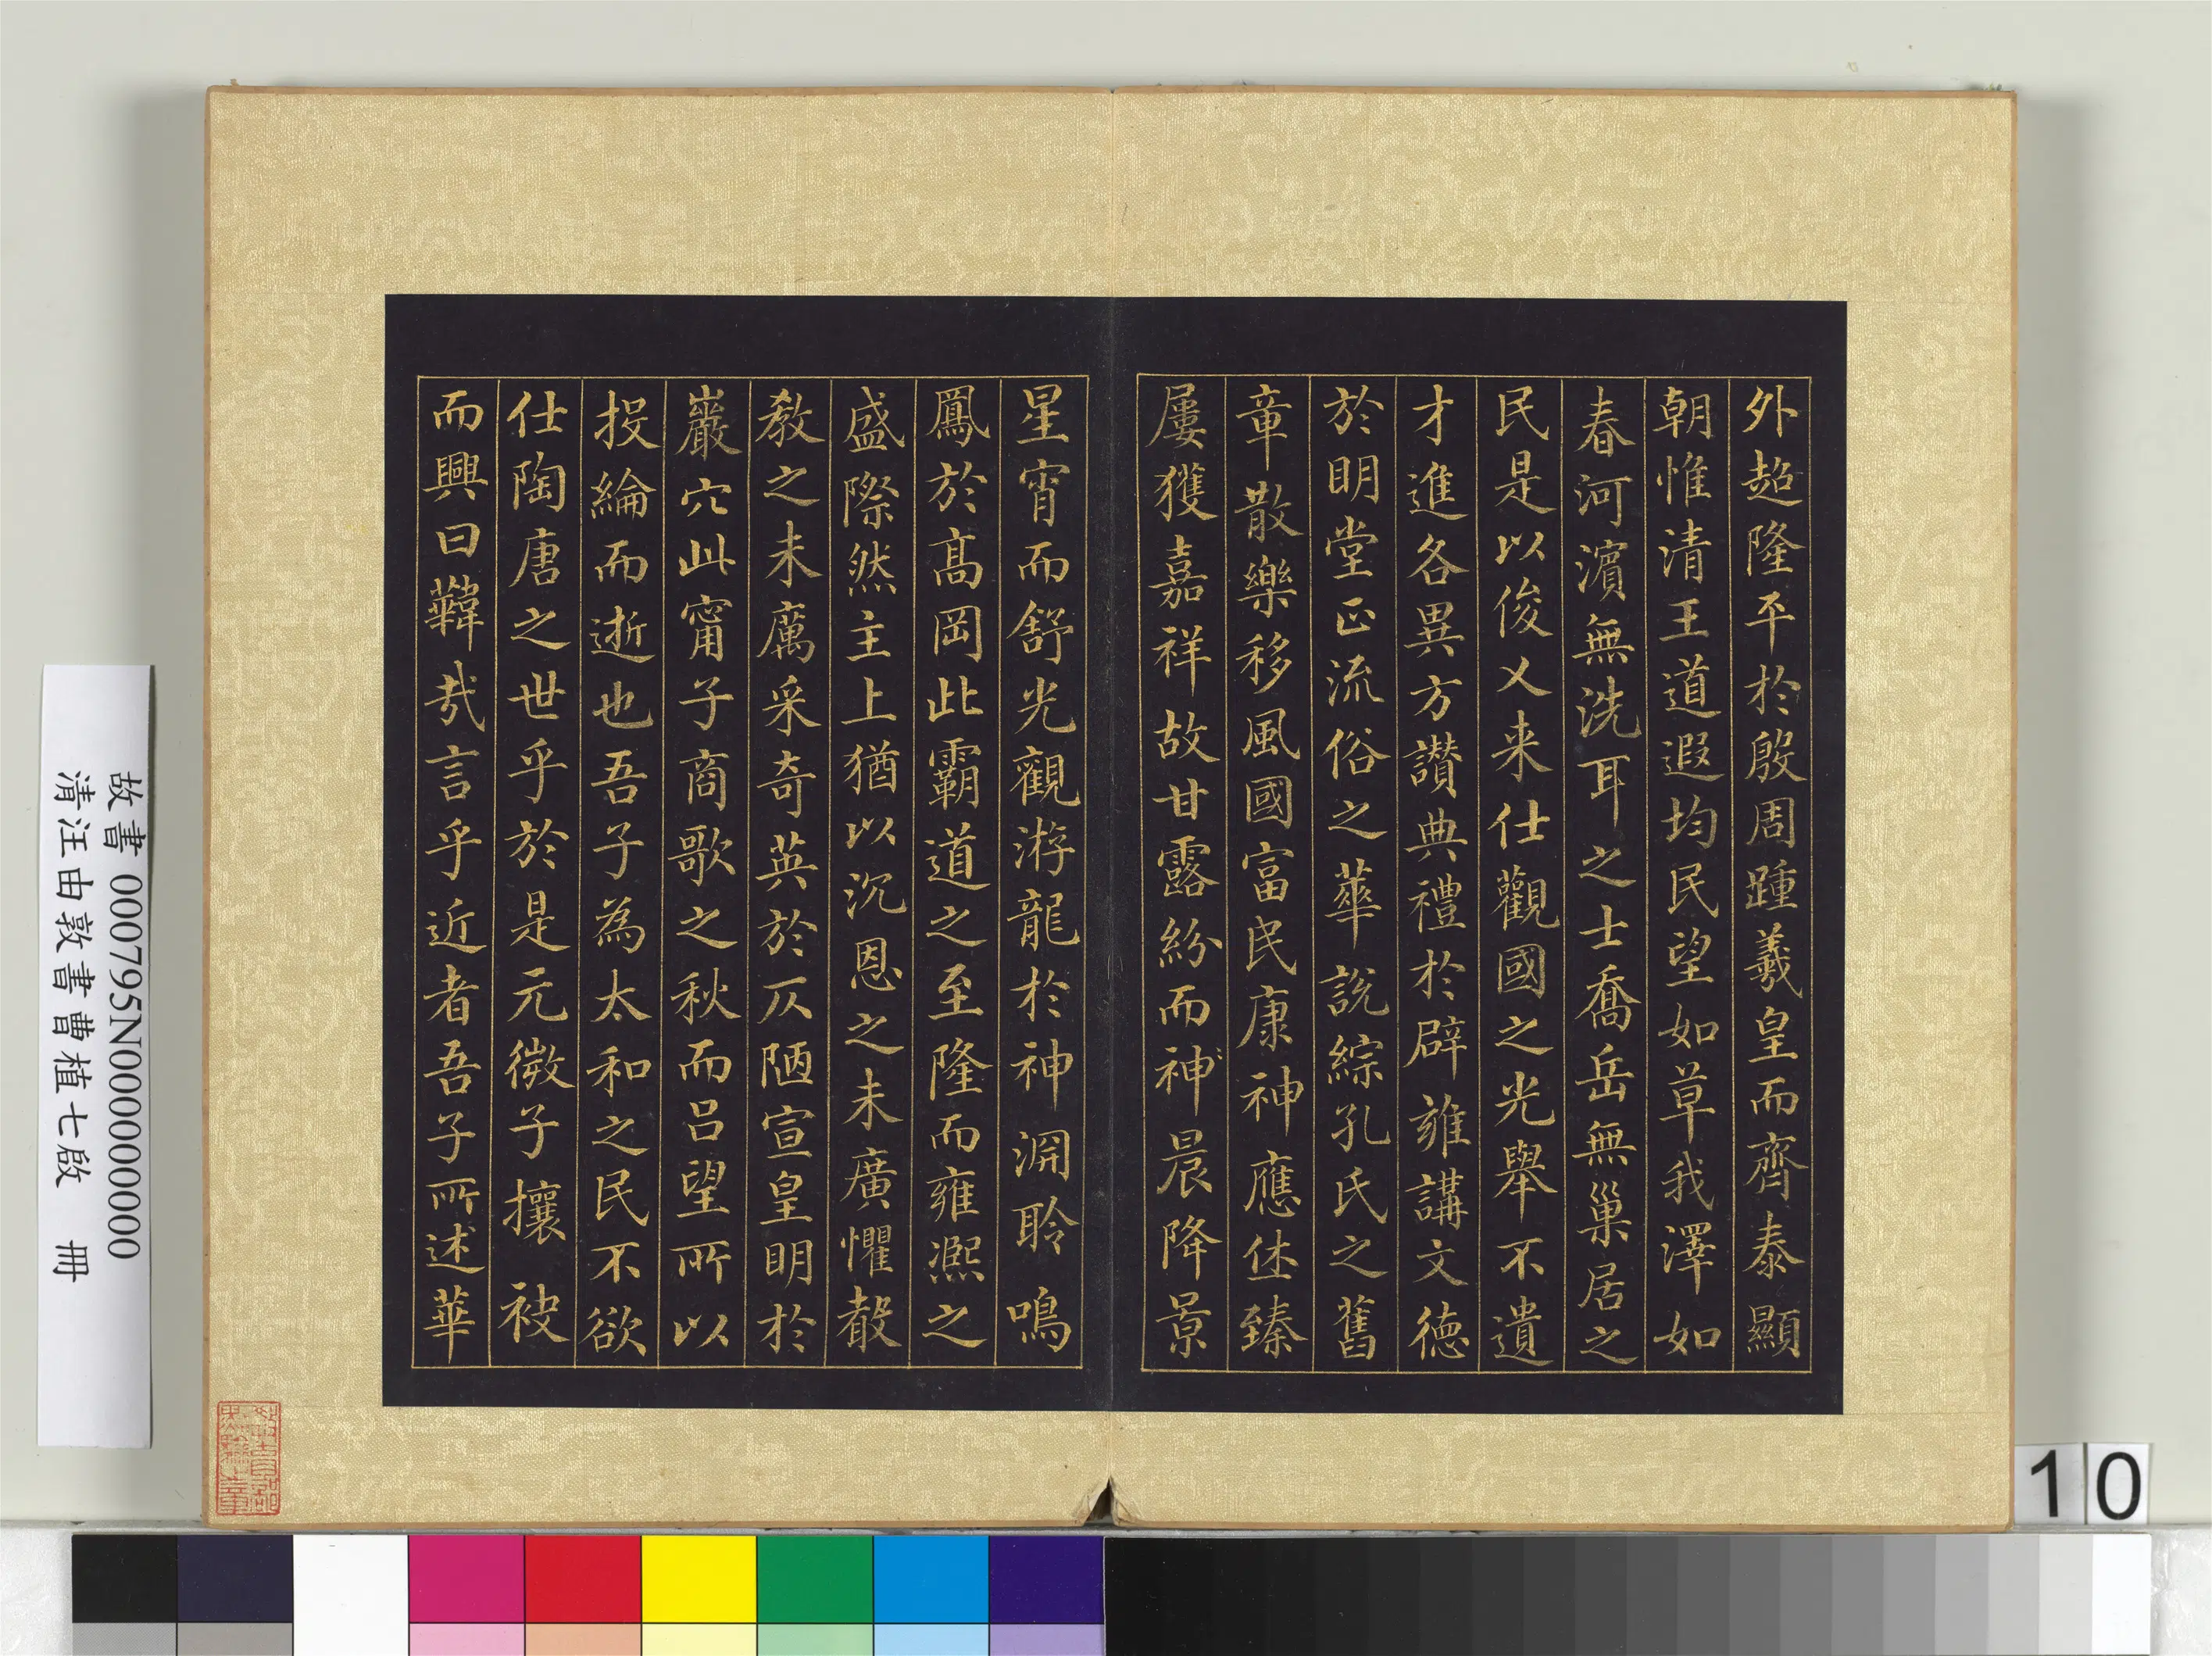 外超隆平於殷周踵羲皇而齊泰顯
朝惟清王道遐均民望如草我澤如
春河濵無洗耳之士喬岳無巢居之
民是以俊乂来仕觀國之光舉不遺
才進各異方讃典禮於辟雍講文德
於明堂正流俗之華説綜孔氏之舊
章散樂移風國富民康神應休臻
屢獲嘉祥故甘露紛而神晨降景
星宵而舒光觀游龍於神淵聆鳴
鳳於髙岡此霸道之至隆而雍熈之
盛際然主上猶以沉恩之未廣懼聲
教之未厲采奇英於仄陋宣皇明於
巖穴此甯子商歌之秋而吕望所以
投綸而逝也吾子為太和之民不欲
仕陶唐之世乎於是元微子攘袂
而興曰韡哉言乎近者吾子所述華
故書 000795N000000000
清汪由敦書曹植七啟 冊
10